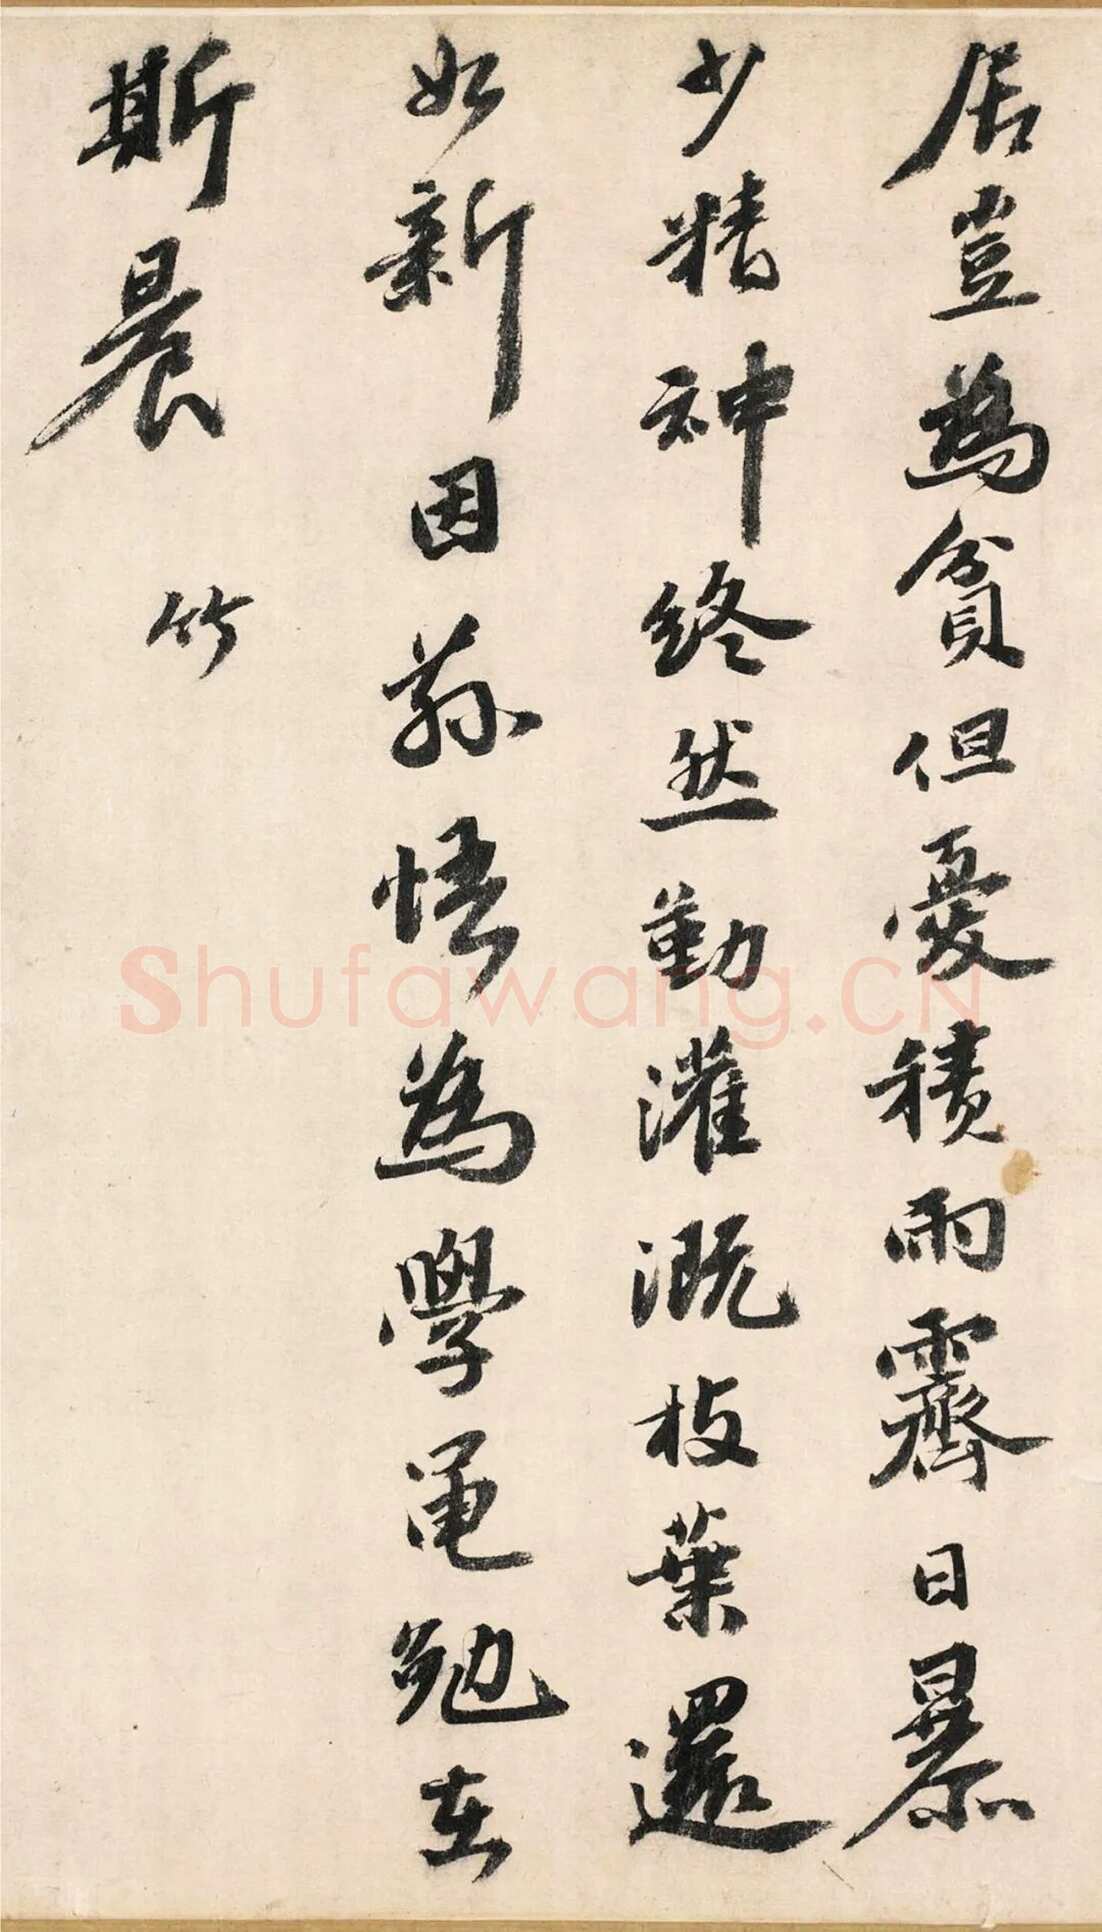 居豈為貧但憂積雨霽日暴
少精神終然勤灌溉枝葉還
如新因蓀悟為學黽勉在
斯晨 竹
Shufawang.CN